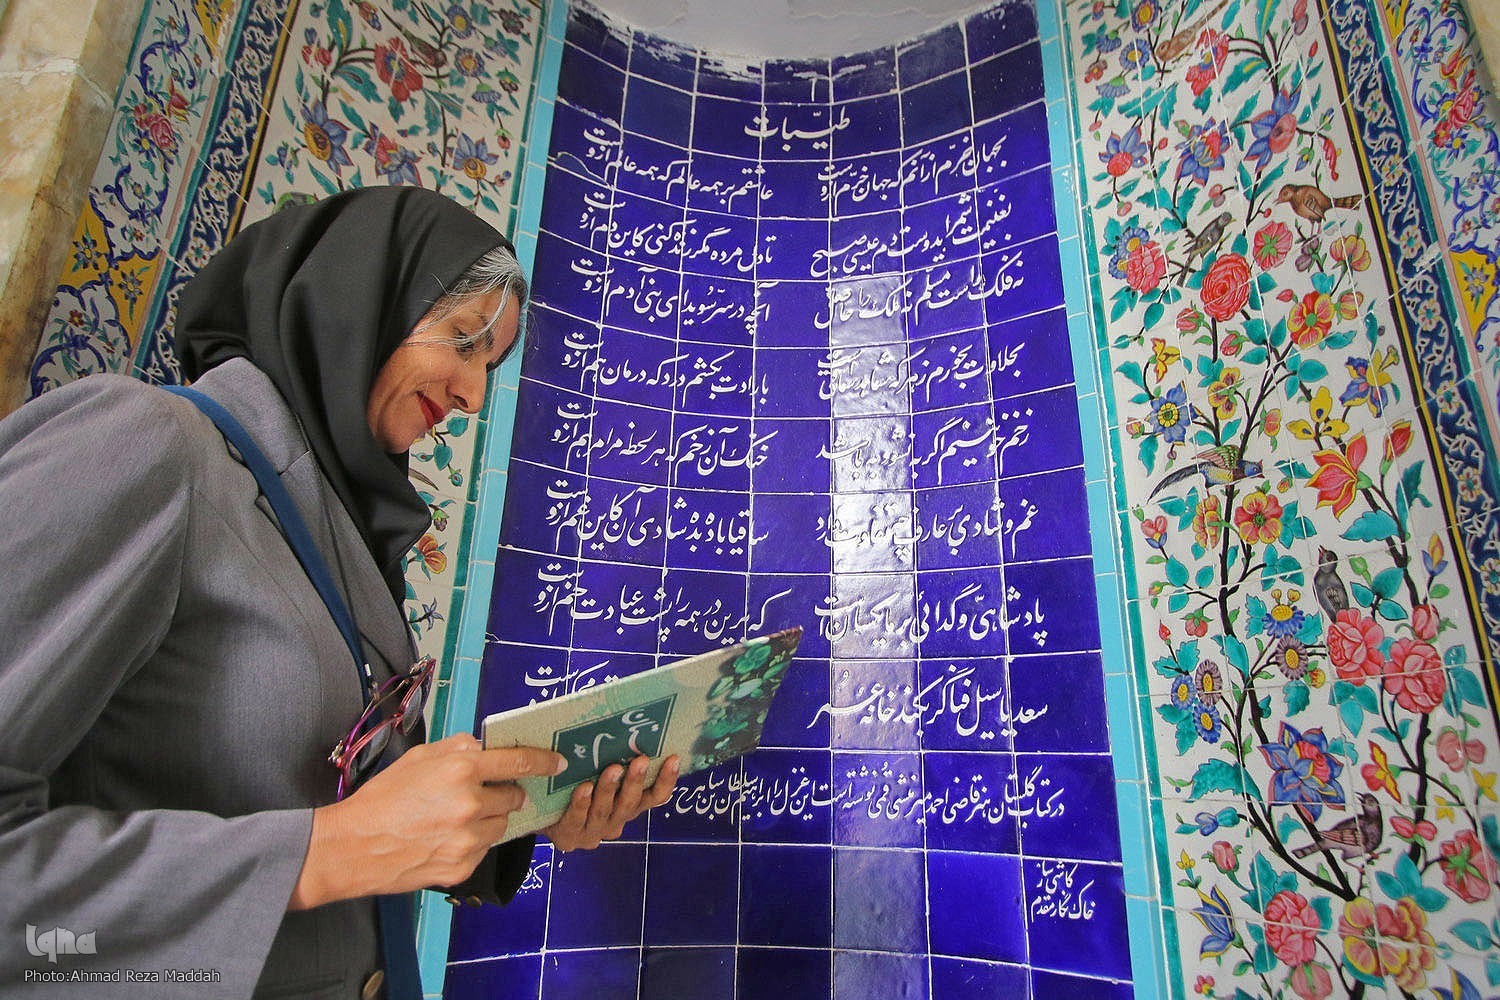 طیّبات
بجهان خرّم از آنم که جهان خرّم ازوست عاشقم بر همه عالم که همه عالم ازوست
بغنیمت شمر ایدوست دم عیسی صبح تا دل مرده مگر زنده کنی کاین دم ازوست
نه فلک راست مسلم نه ملک را حاصل آنچه در سرّ سویدای بنی آدم ازوست
بحلاوت بخورم زهر که شاهد ساقیست بارادت بکشم درد که درمان هم ازوست
زخم خونینم اگر به نشود به باشد خنک آن زخم که هر لحظه مرا مرهم ازوست
غم و شادی بر عارف چه تفاوت دارد ساقیا باده بده شادی آن کاین غم ازوست
پادشاهیّ و گدائی بر ما یکسانست که برین در همه را پشت عبادت خم ازوست
سعدیا سیل فنا گر بکند خانهٔ عمر
در کتاب گلستان هنر قاضی احمد میر منشی قمی نوشته است این غزل را ابراهیم سلطان بن شاهرخ
کاشی ساز
خاک نگار مقدم
گلستان
سعدی
iqna
Photo:Ahmad Reza Maddah